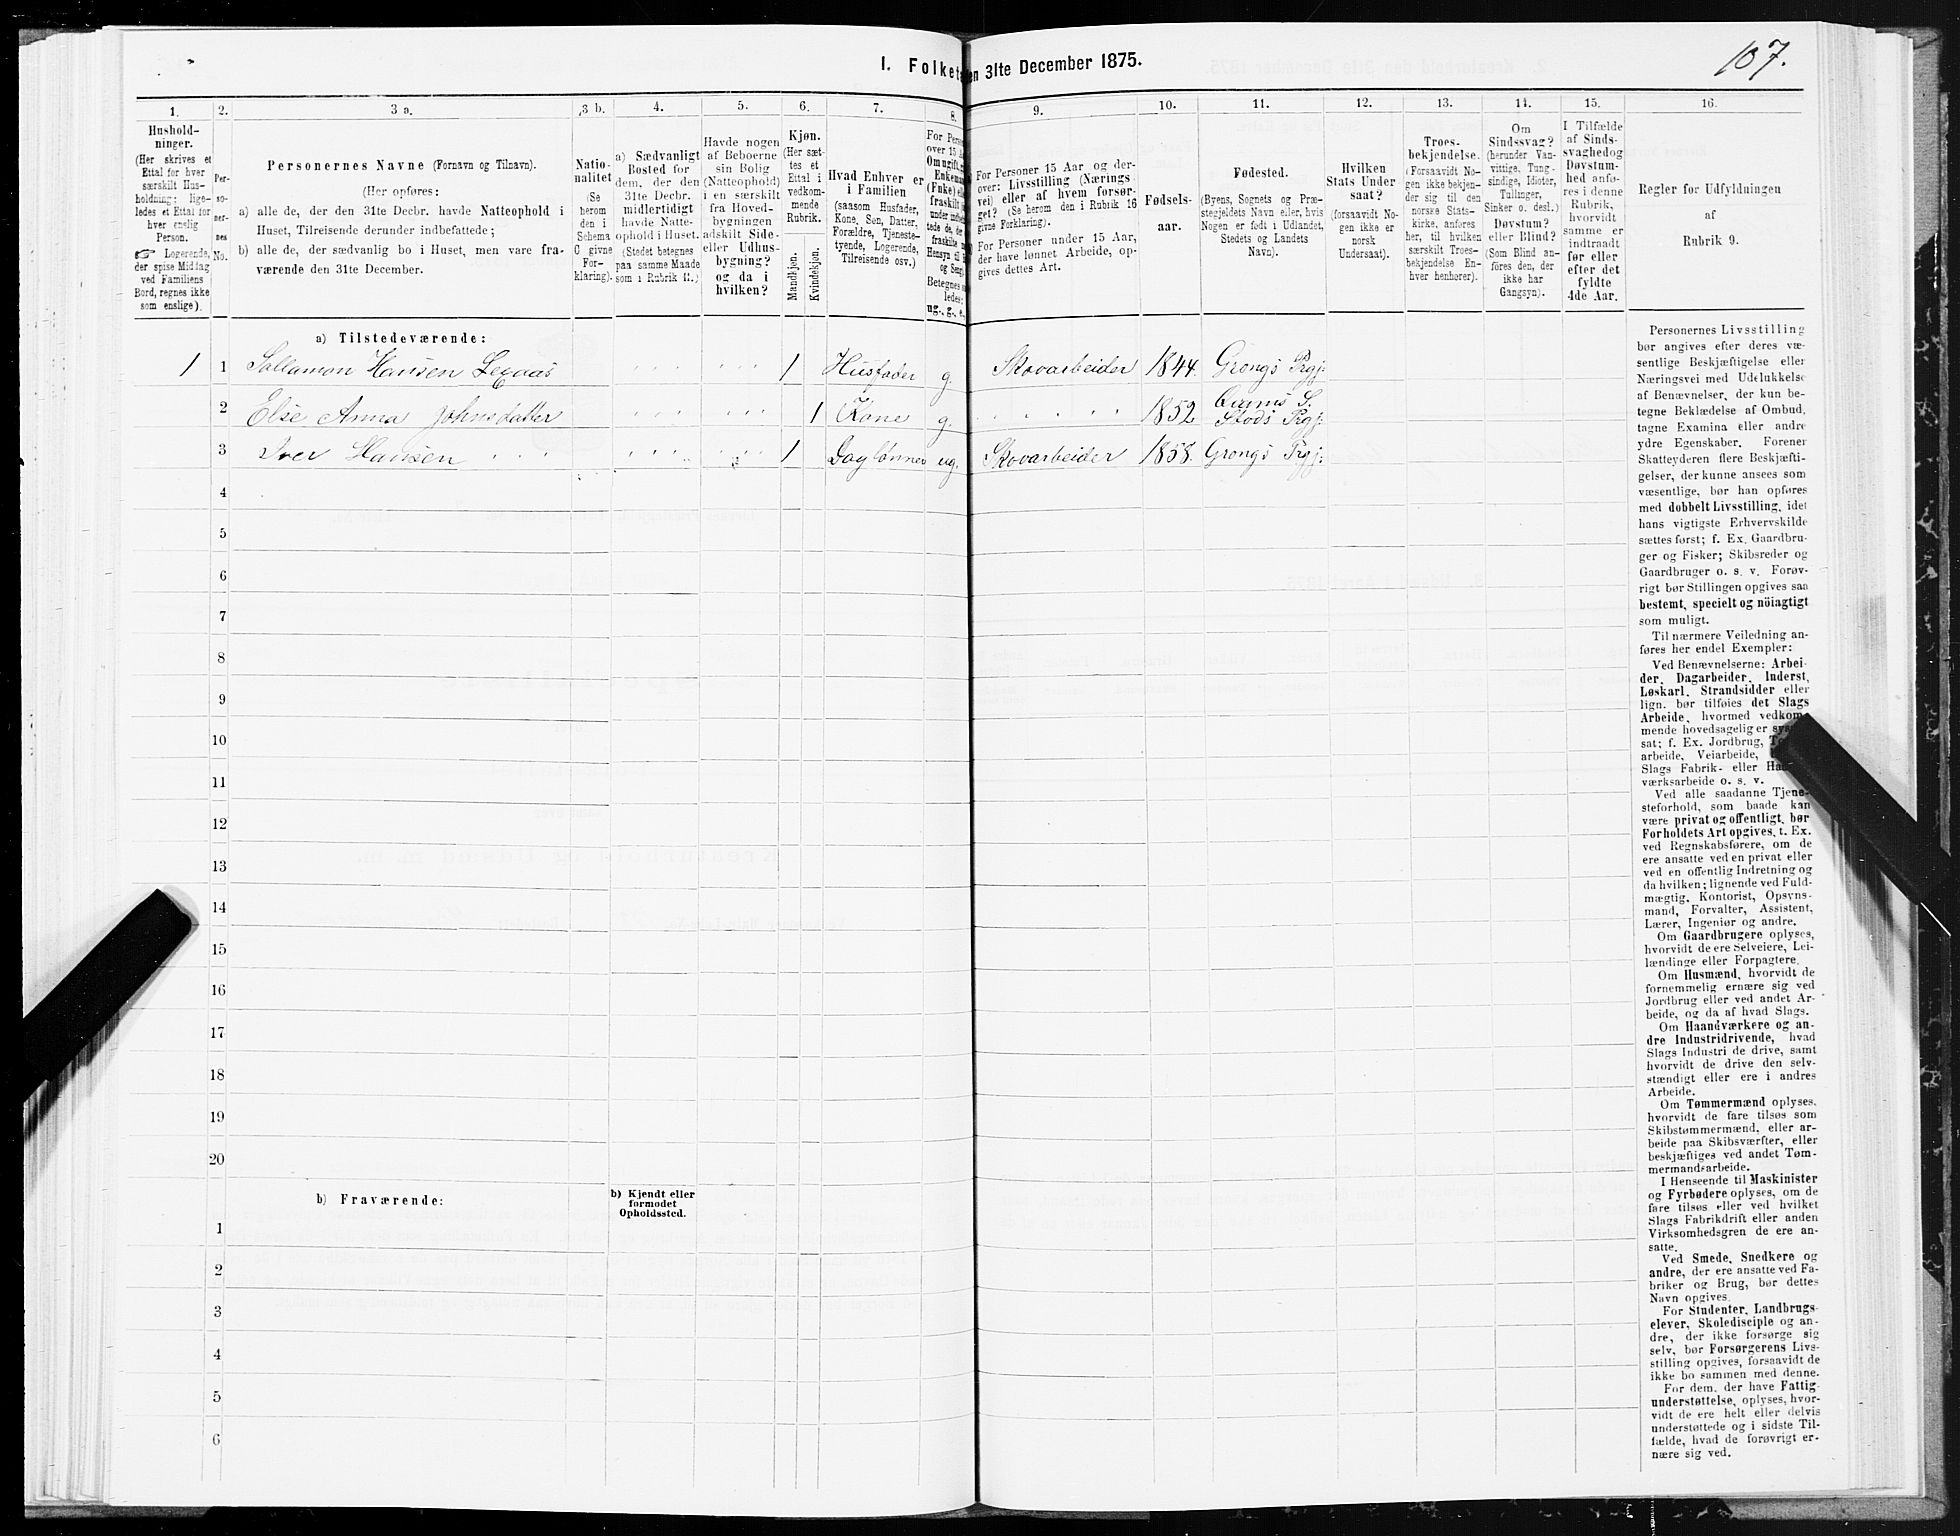 107.
I. Folket
en 31te December 1875.
1.
2.
3 a.
3 b.
4.
5.
6.
7.
8.
9.
10.
11.
12.
13.
14.
15.
16.
Hushold-
ninger.
(Her skrives et
Ettal for hver
særskilt Hus-
holdning; lige-
ledes et Ettal for
hver enslig
Person.
☞ Logerende,
der spise Middag
ved Familiens
Bord, regnes ikke
som enslige).
Per-
so-
ner-
nes
No.
Personernes Navne (Fornavn og Tilnavn).
(Her opføres:
a) alle de, der den 31te Decbr. havde Natteophold i
Huset, Tilreisende derunder indbefattede;
b) alle de, der sædvanlig bo i Huset, men vare fra-
værende den 31te December.
Natio-
nalitet
(Se
herom
den i
Schema
C givne
For-
klaring).
a) Sædvanligt
Bosted for
dem, der den
31te Decbr.
midlertidigt
havde Natte-
ophold i Huset.
(Stedet betegnes
paa samme Maade
som i Rubrik 11.)
Havde nogen
af Beboerne
sin Bolig
(Natteophold)
i en særskilt
fra Hoved-
bygningen
adskilt Side-
eller Udhus-
bygning?
og da i
hvilken?
Kjøn.
(Her sæt-
tes et
Ettal i
vedkom-
mende
Rubrik.
Mandkjøn.
Kvindekjøn.
Hvad Enhver er
i Familien
(saasom Husfader,
Kone, Søn, Datter,
Forældre, Tjeneste-
tyende, Logerende,
Tilreisende osv.)
For Pers
over 15 A
Om ugift, g
Enkema
(Enke) el
fraskilt
under
tede de, de
fraskilte
Hensyn til
og Seng
Betegnes
ledes:
ug., g., e.,
For Personer 15 Aar og der-
over: Livsstilling (Nærings
vei) eller af hvem forsør-
get? (Se herom den i Rubrik 16
givne Forklaring).
For Personer under 15 Aar,
der have lønnet Arbeide, op-
gives dettes Art.
Fødsels-
aar.
Fødested.
(Byens, Sognets og Præ-
stegjeldets Navn eller, hvis
Nogen er født i Udlandet,
Stedets og Landets
Navn).
Hvilken
Stats Under
saat?
(forsaavidt No-
gen ikke er
norsk
Undersaat).
Troes-
bekjendelse.
(Forsaavidt No-
gen ikke bekjen-
der sig til den
norske Stats-
kirke, anføres
her, til hvilken
særskilt Troes-
bekjendelse En-
hver henhører).
Om
Sindssvag?
(herunder Van-
vittige, Tung-
sindige, Idioter,
Tullinger,
Sinker o. desl.)
Døvstum?
eller Blind?
(Som Blind an-
føres den, der
ikke har
Gangsyn).
I Tilfælde
af Sinds-
svaghed og
Døvstum-
hed anfø-
res i denne
Rubrik,
hvorvidt
samme er
indtraadt
før eller
efter det
fyldte
4de Aar.
Regler for Udfyldningen
af
Rubrik 9.
a) Tilstedeværende:
1 1 Sallamon Hansen Lexaas 1 Husfader g. Skovarbeider 1844. Grongs Prgj:
2 Else Anna Johnsdatter 1 Kone g. 1852 S. Stods Prgj:
3 Iver Hansen 1 Daglønner ug. Skovarbeider 1858. Grongs Prgj:
4
5
6
7
8
9
10
11
12
13
14
15
16
17
18
19
20
b) Fraværende:
b) Kjendt eller
formodet
Opholdssted.
1
2
3
4
5
6
Personernes Livsstilling
bør angives efter deres væ-
sentlige Beskjæftigelse eller
Næringsvei med Udelukkelse
af Benævnelser, der kun be-
tegne Beklædelse af Ombud,
tagne Examina eller andre
ydre Egenskaber. Forener
Skatteyderen flere Beskjæfti-
gelser, der kunne ansees som
væsentlige, bør han opføres
med dobbelt Livsstilling, idet
hans vigtigste Erhvervskilde
sættes først; f. Ex. Gaardbru-
ger og Fisker; Skibsreder og
Gaardbruger o. s. v. Forøv-
rigt bør Stillingen opgives saa
bestemt, specielt og nöiagtigt
som muligt.
Til nærmere Veiledning an-
føres her endel Exempler:
Ved Benævnelserne: Arbei-
der, Dagarbeider, Inderst,
Løskarl, Strandsidder eller
lign. bør tilføies det Slags
Arbeide, hvormed vedkom-
mende hovedsagelig er
sat; f. Ex. Jordbrug,
arbeide, Veiarbeide,
Slags Fabrik- eller
værksarbeide o. s. v.
Ved alle saadanne Tjene-
steforhold, som baade kan
være privat og offentligt, bør
Forholdets Art opgives, t. Ex.
ved Regnskabsførere, om de
ere ansatte ved en privat eller
ved en offentlig Indretning og
da hvilken; lignende ved Fuld-
mægtig, Kontorist, Opsyns-
mand, Forvalter, Assistent,
Lærer, Ingeniør og andre.
Om Gaardbrugere oplyses,
hvorvidt de ere Selveiere, Lei-
lændinge eller Forpagtere.
Om Husmænd, hvorvidt de
fornemmelig ernære sig ved
Jordbrug eller ved andet Ar-
beide, og da af hvad Slags.
Om Haandværkere og an-
dre Industridrivende, hvad
Slags Industri de drive, samt
hvorvidt de drive den selv-
stændigt eller ere i andres
Arbeide.
Om Tømmermænd oplyses,
hvorvidt de fare tilsøs som
Skibstømmermænd, eller ar-
beide paa Skibsværfter, eller
beskjæftiges ved andet Tøm-
mermandsarbeide.
I Henseende til Maskinister
og Fyrbødere oplyses, om de
fare tilsøs eller ved hvilket
Slags Fabrikdrift eller anden
Virksomhedsgren de ere an-
satte.
Ved Smede, Snedkere og
andre, der ere ansatte ved Fa-
briker og Brug, bør dettes
Navn opgives.
For Studenter, Landbrugs-
elever, Skoledisciple og an-
dre, der ikke forsørge sig
selv, bør Forsørgerens Livs-
stilling opgives, forsaavidt de
ikke bo sammen med denne.
For dem, der have Fattig-
understøttelse, oplyses, hvor-
vidt de ere helt eller delvis
understøttede og i sidste Til-
fælde, hvad de forøvrigt er-
nære sig ved.